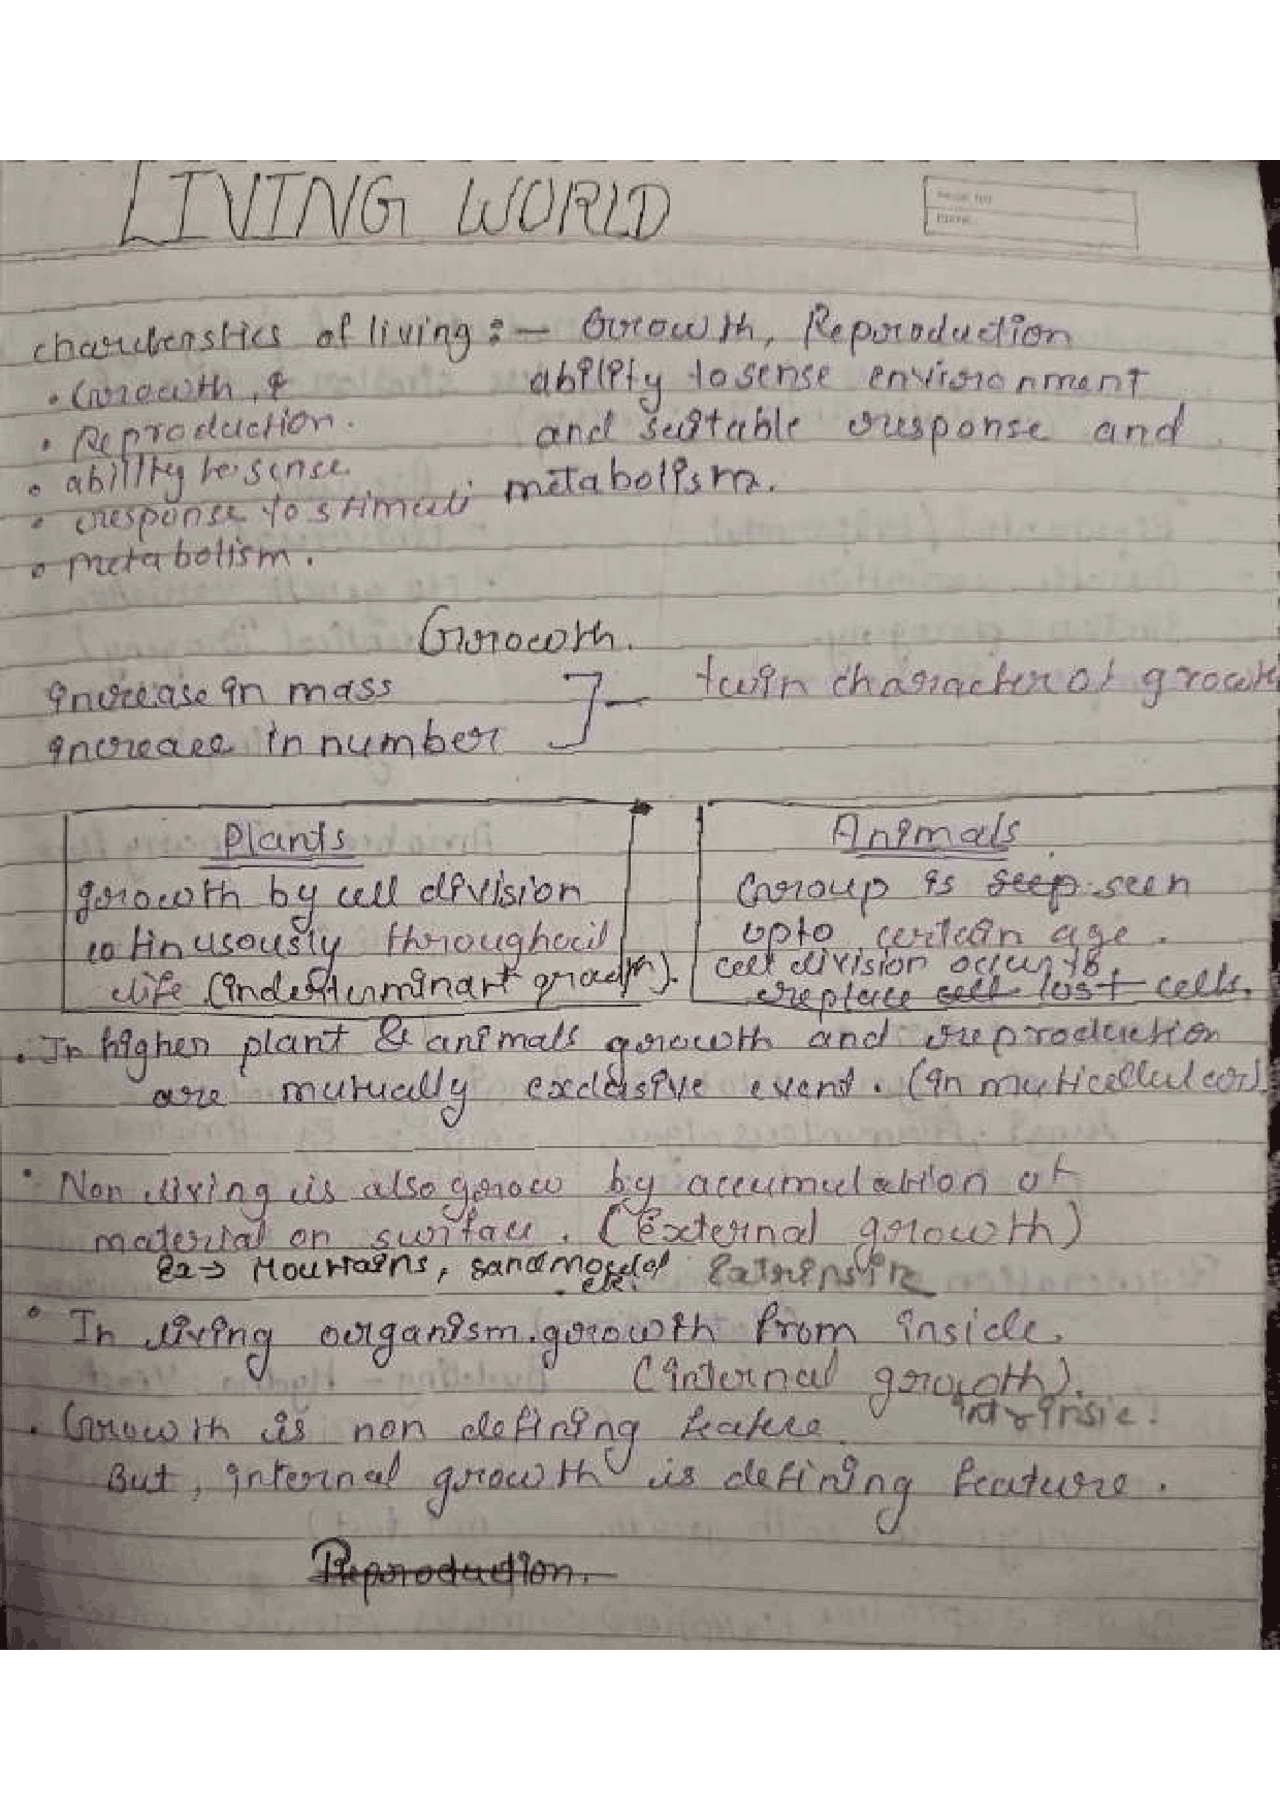 LIVING WORLD
PAGE NO
DATE
charcterstics of living :- Growth, Reproduction
ability to sense environment
and suitable response and
metabolism.
• Growth, &
• Reproduction.
• abillity to sense
• response to stimuli
• metabolism.
Growth.
increase in mass
increase in number
] - twin character of growth
Plants
growth by cell division
cotinusously throughout
life (indeterminart growth).
Animals
Group is seep seen
upto certain age.
cell division occur to
replace cell lost cells.
• In higher plant & animals growth and reproduction
are mutually exclusive event. (in muticellular)
• Non living is also grow by accumulation of
material on surface. (External growth)
Ex → Mountains, sand etc. Extrinsic
• In living organism growth from inside.
(internal growth).
intrinsic.
• Growth is non defining feature.
But, internal growth is defining feature.
Reproduction.